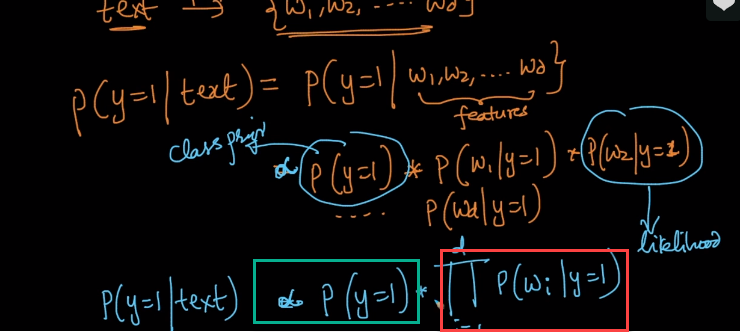 text → {w1, w2, ---- wd}
P(y=1 | text) = P(y=1 | w1, w2, .... wd}
features
class prior
∝ P(y=1) * P(w1 | y=1) * P(w2 | y=1)
.... P(wd | y=1)
likelihood
P(y=1 | text) ∝ P(y=1) * ∏ d i=1 P(wi | y=1)